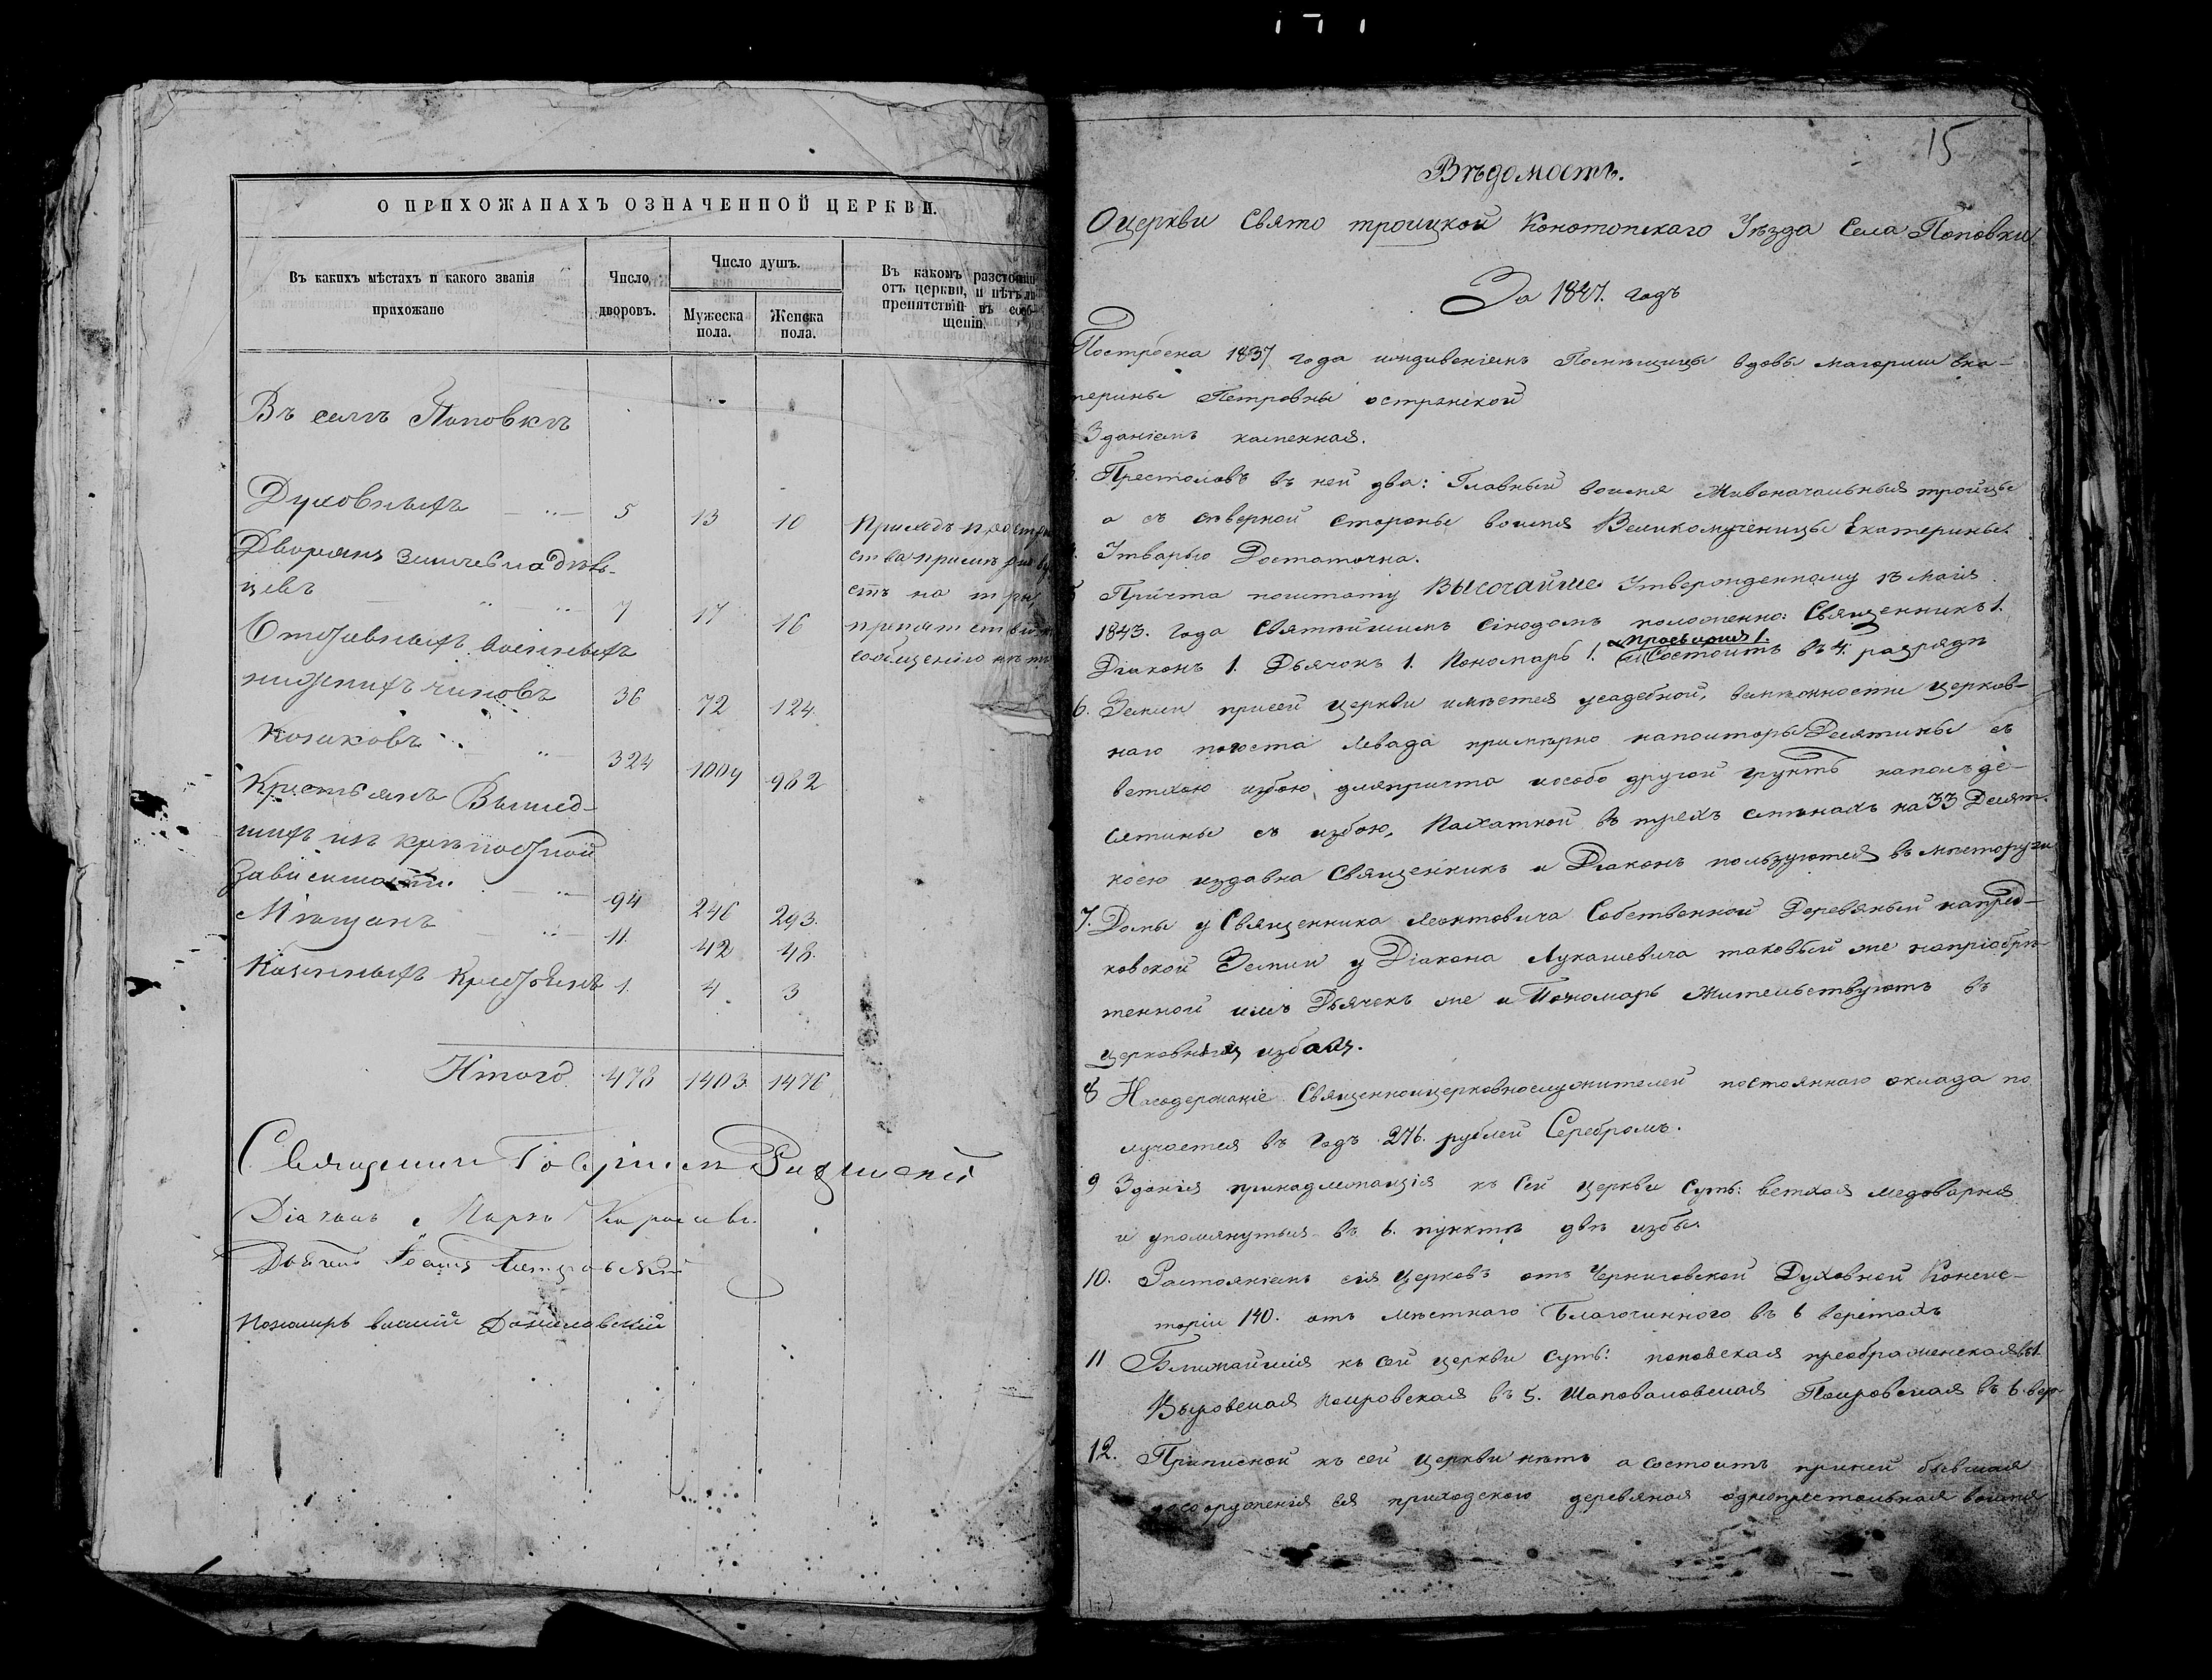 О ПРИХОЖАНАХЪ ОЗНАЧЕННОЙ ЦЕРКВИ.
Въ какихъ мѣстахъ и какого званія прихожане
Число дворовъ.
Число душъ.
Мужеска пола.
Женска пола.
Въ какомъ разстояніи
отъ церкви, и нѣтъ ли
препятствій въ сооб-
щеніи.
Въ селѣ Поповкѣ
Духовныхъ 5 13 10
Дворянъ
7 17 16
Отставныхъ военныхъ
нижнихъ чиновъ 36 72 124
Козаковъ 324 1009 982
Крестьянъ Вышед-
шихъ изъ крѣпостной
зависимости 94 246 293.
Мѣщанъ 11. 42 48.
Казенныхъ Крестьянъ 1. 4 3
препятствій
сообщенію нѣтъ
Итого 478 1403 1476
Діаконъ Маркъ
Пономарь
15
Вѣдомость.
О церкви Свято троицкой Конотопскаго Уѣзда Села Поповки
За 1847. годъ
Построена 1837 года иждивеніемъ Помѣщицы вдовы маіорши Ека-
терины Петровны
Зданіемъ каменная.
Престоловъ въ ней два: Главный воимя Живоначальныя тройцы
а съ сѣверной стороны воимя Великомученицы Екатерины.
Утварью Достаточна.
5 Причта поштату Высочайше Утвержденному маія
1843. года Святѣйшимъ Сѵнодомъ положенно: Священникъ 1.
Діаконъ 1. Дьячокъ 1. Пономарь 1. просвирня 1. Состоитъ въ 4. разрядѣ
6. Земли присей Церкви имѣется усадебной, Церков-
наго погоста левада примѣрно Десятины съ
ветхою избою, дляпричта иособо другой грунтъ наполъ де-
сятины съ избою, Пахатной въ трехъ смѣнахъ на 33 Десят.
коею издавна Священникъ и Діаконъ пользуются
7. Домы у Священника Леонтовича Собственной Деревяный напред-
ковской Земли у Діакона Лукашевича таковый же напріобрѣ-
тенной имъ Дьячекъ же и Пономарь Жительствуютъ въ
церковныхъ избахъ.
8 Насодержаніе Священноицерковнослужителей постояннаго оклада по
лучается въ годъ 276. рублей Серебромъ.
9 Зданія принадлежащія къ Сей церкви суть: ветхая медоварня
и упомянутыя въ 6. пунктѣ двѣ избы
10. Растояніемъ сія Церковь отъ Черниговской Духовной Консис-
торіи 140. отъ мѣстнаго Благочиннаго въ 6 верстахъ
11 Ближайшія къ сей церкви суть: поповская преображенская въ 1.
Выровская Покровская въ 5. Шаповаловская Покровская въ 6. вер
12. Приписной къ сей Церкви нѣтъ а состоитъ приней бывшая
досооруженія ея приходскою деревяная однопрестольная воимя